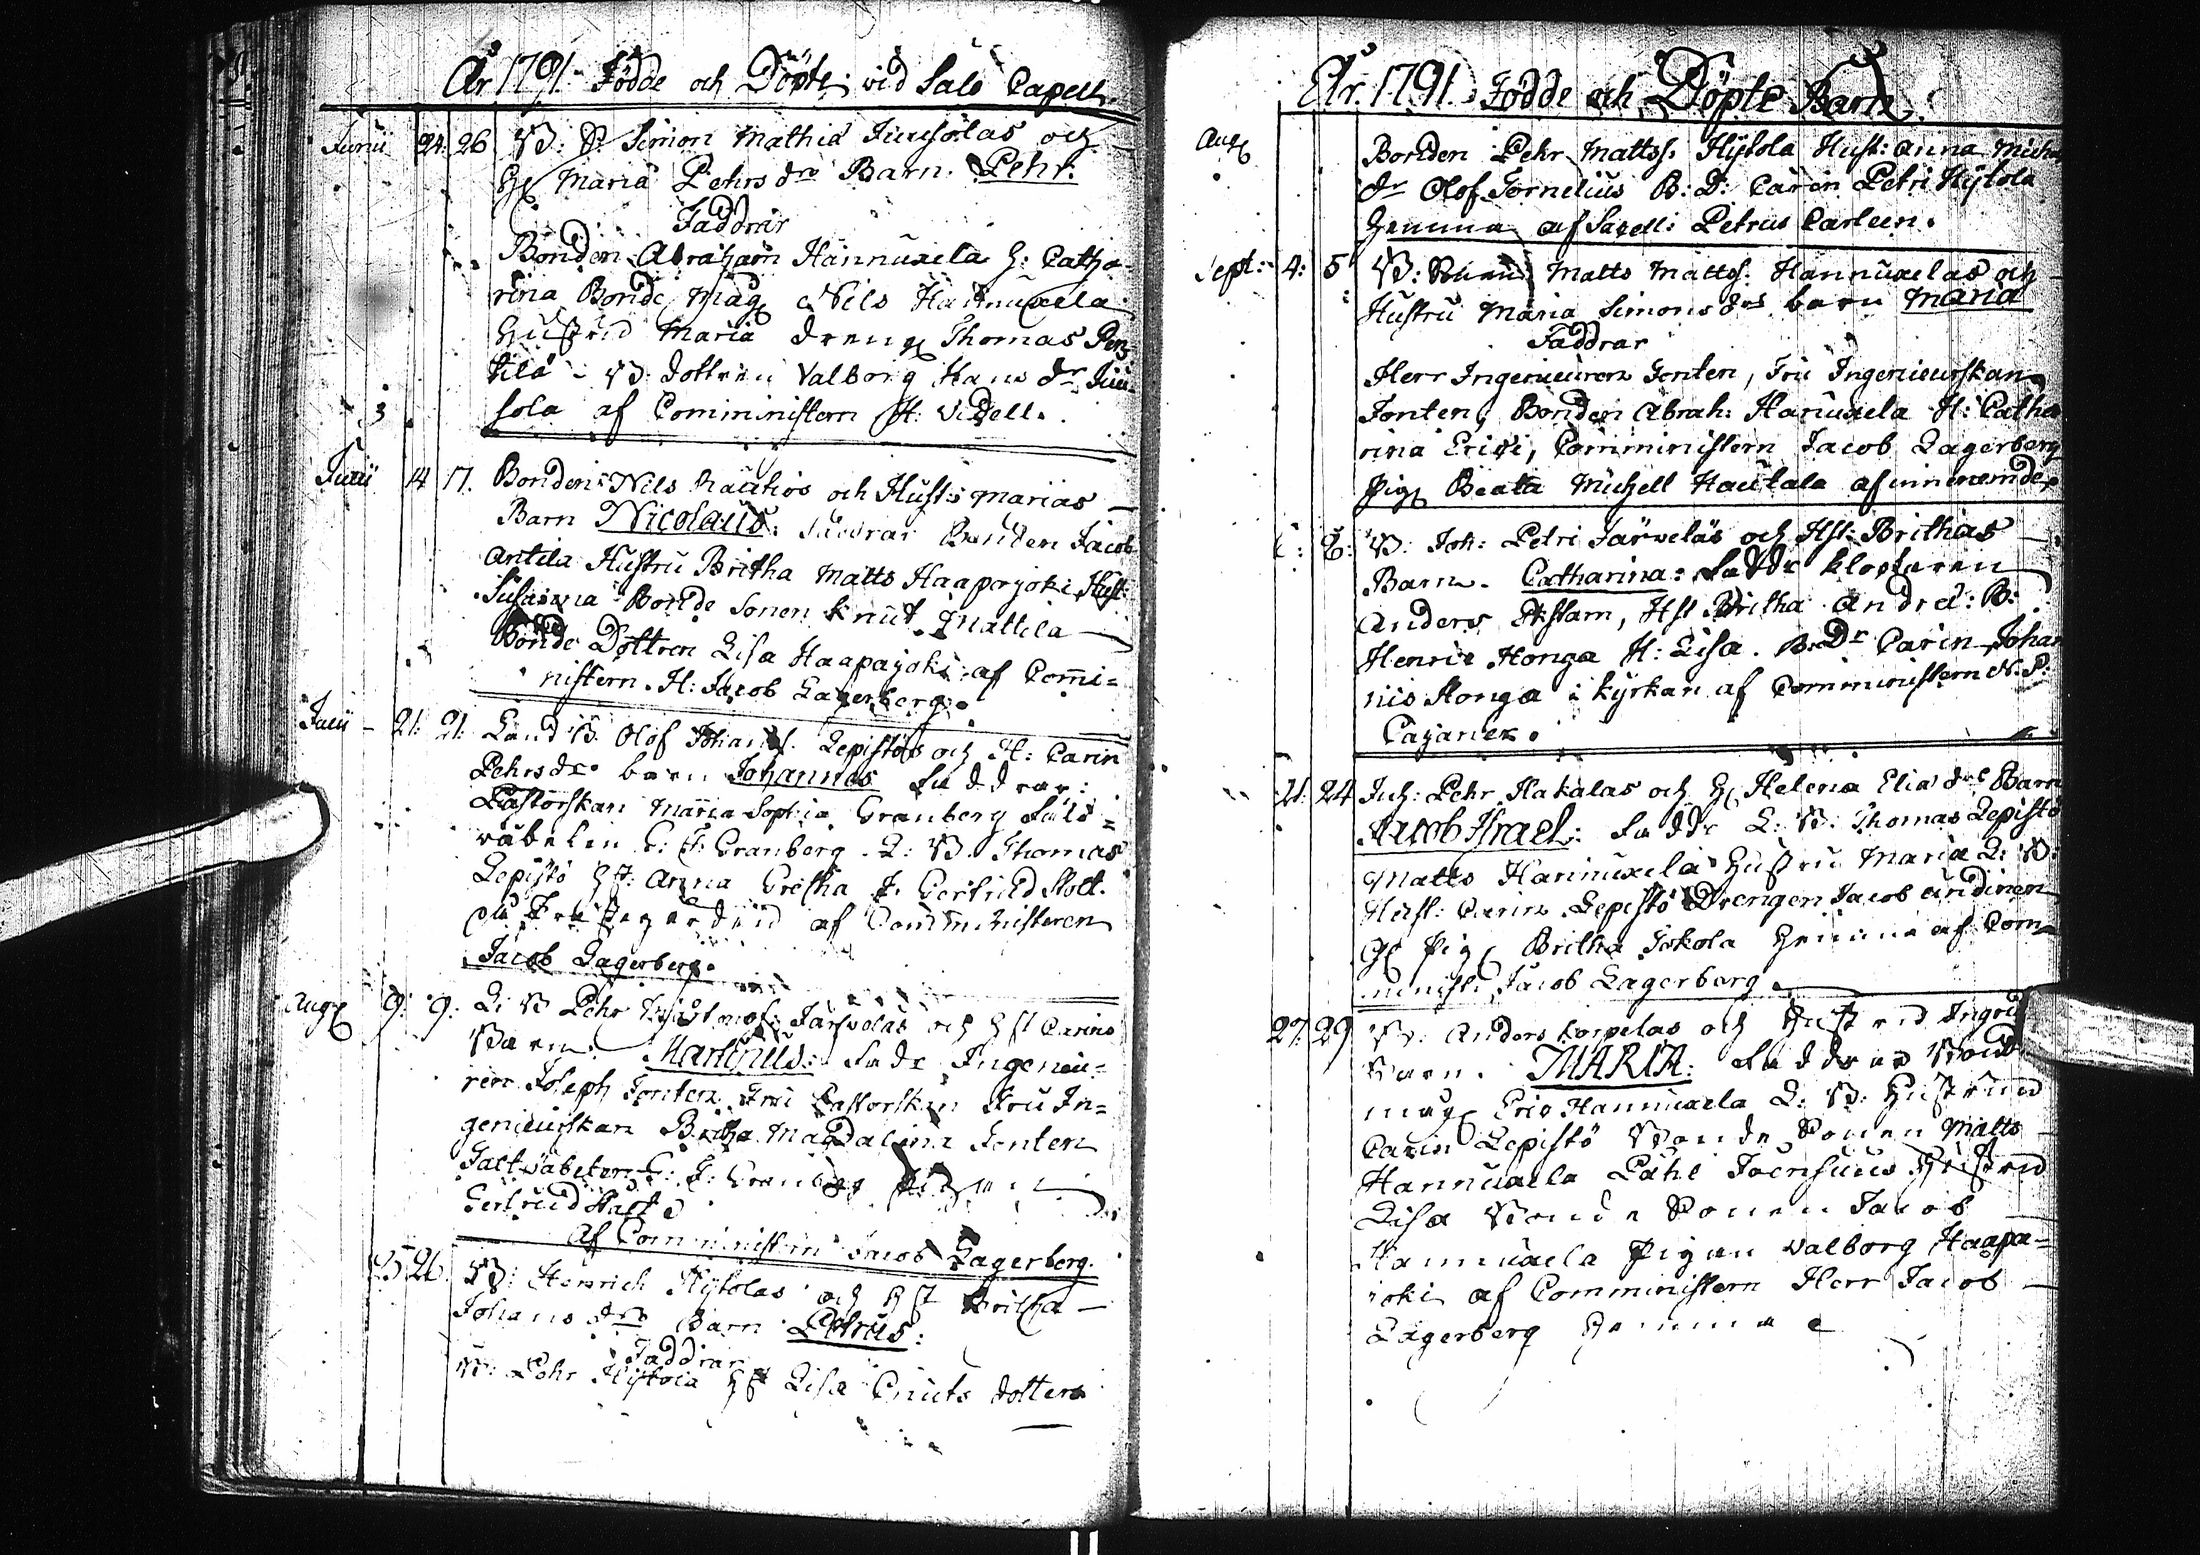 År 1791. Födde och Döpte vid Salo Capell.
Junii 24. 26 B: S: Simon Mathiæ Juusolas och
Maria Pehrs dr Barn Pehr.
Faddrar
Bonden Abraham Hannuxela H: Catha-
rina Bonde Måg Nils Hannuxela
Hustrid Maria dreng Thomas Pen-
tilä B. dottren Valborg Hans dr Juu-
sola af Comministern H: Videll.
Julii 14 17. Bonden Nils Rautios och Hust: Marias
Barn Nicolaus: Faddrar Bonden Jacob
Antila Hustru Britha Matts Haapajoki Hust:
Susanna Bonde Sonen Knut Mattila
Bonde Dottren Lisa Haapajoki af Commi=
nistern H: Jacob Lagerberg.
Julii 21. 21. Land B. Olof Johans. Lepistös och H: Carin
Pehrs dr barn Johannes Faddrar:
Pastorskan Maria Sophia Granberg
C: F: Granberg L: B. Thomas
Lepistö Anna Gretha Gertrud Stolt.
af Comministeren
Jacob Lagerberg.
Aug 9. 9. L: B Pehr Järvelas och Hst Carins
Barn: Martinus: Fadr Ingeniu=
ren Joseph Tonten Fru Pastorskan Fru In=
genieurskan Britha Magdalena Tonten
C: F: Granberg
Gertrud Stolt
af Comministern Jacob Lagerberg.
25 26. B: Henrich Hÿtolas och Hst Britha
Johans drs Barn Petrus:
Faddrar
B: Pehr Hÿtola Lisa Cnuts dotter
År. 1791. Födde och Döpte Barn.
Aug Bonden Pehr Mattss. Hÿtola Hust: Anna Mich
dr Olof Fornelius B: D: Carin Petri Hÿtola
Hemma af Sacell: Petrus Carleen.
Sept: 4: 5 B: Matts Mattss. Hannuxelas och
Hustru Maria Simons drs barn Maria
Faddrar
Herr Ingenieuren Tonten, Fru Ingenieurskan
Tonten, Bonden Abrah: Hanuxela H: Catha
rina Erici, Comministern Jacob Lagerberg
Pig Beata Michell Hautala af
B: Joh: Petri Järveläs och Hst: Brithas
Barn. Catharina: Faddr klockaren
Anders Ekstam, Hst Britha Andræ: B:
Henric Honga H: Lisa. B: Dr Carin Johan
nis Honga i kyrkan af Comministern N. P:
Cajanen.
21: 24 Inh: Pehr Hakalas och Helena Eliæ drs Barn
Jacob Israel: Faddr L: B: Thomas Lepistö
Matts Hannuxela Hustru Maria L: B:
Hust: Carin Lepistö Drengen Jacob
Pig Britha Jokola Hemma af Com-
minist: Jacob Lagerberg
27. 29 B: Anders Korpelas och Hustrud Ingrid
Barn. MARIA: Faddrar Bond
måg Eric Hannuxela L: B: Hustrun
Carin Lepistö Bonde Sonen Matts
Hannuxela Påhl Joensuus Hustrid
Lisa Bonde Sonen Jacob
Hannuxela Pigan Valborg Haapa=
joki af Comministern Herr Jacob
Lagerberg Hemma